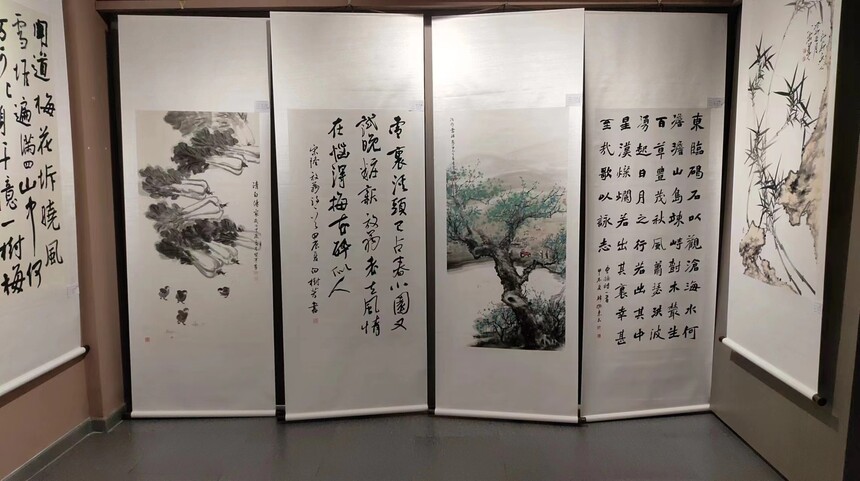 聞道梅花坼曉風
雪堆遍滿四山中何
方可化身千億一樹梅
清白傳家
雪裏溪頭已占春小園又
試晚粧新放翁老去風情
在惱得梅花醉似人
宋陸放翁詩
東臨碣石以觀滄海水何
澹澹山島竦峙樹木叢生
百草豐茂秋風蕭瑟洪波
湧起日月之行若出其中
星漢燦爛若出其裏幸甚
至哉歌以詠志
曹操詩